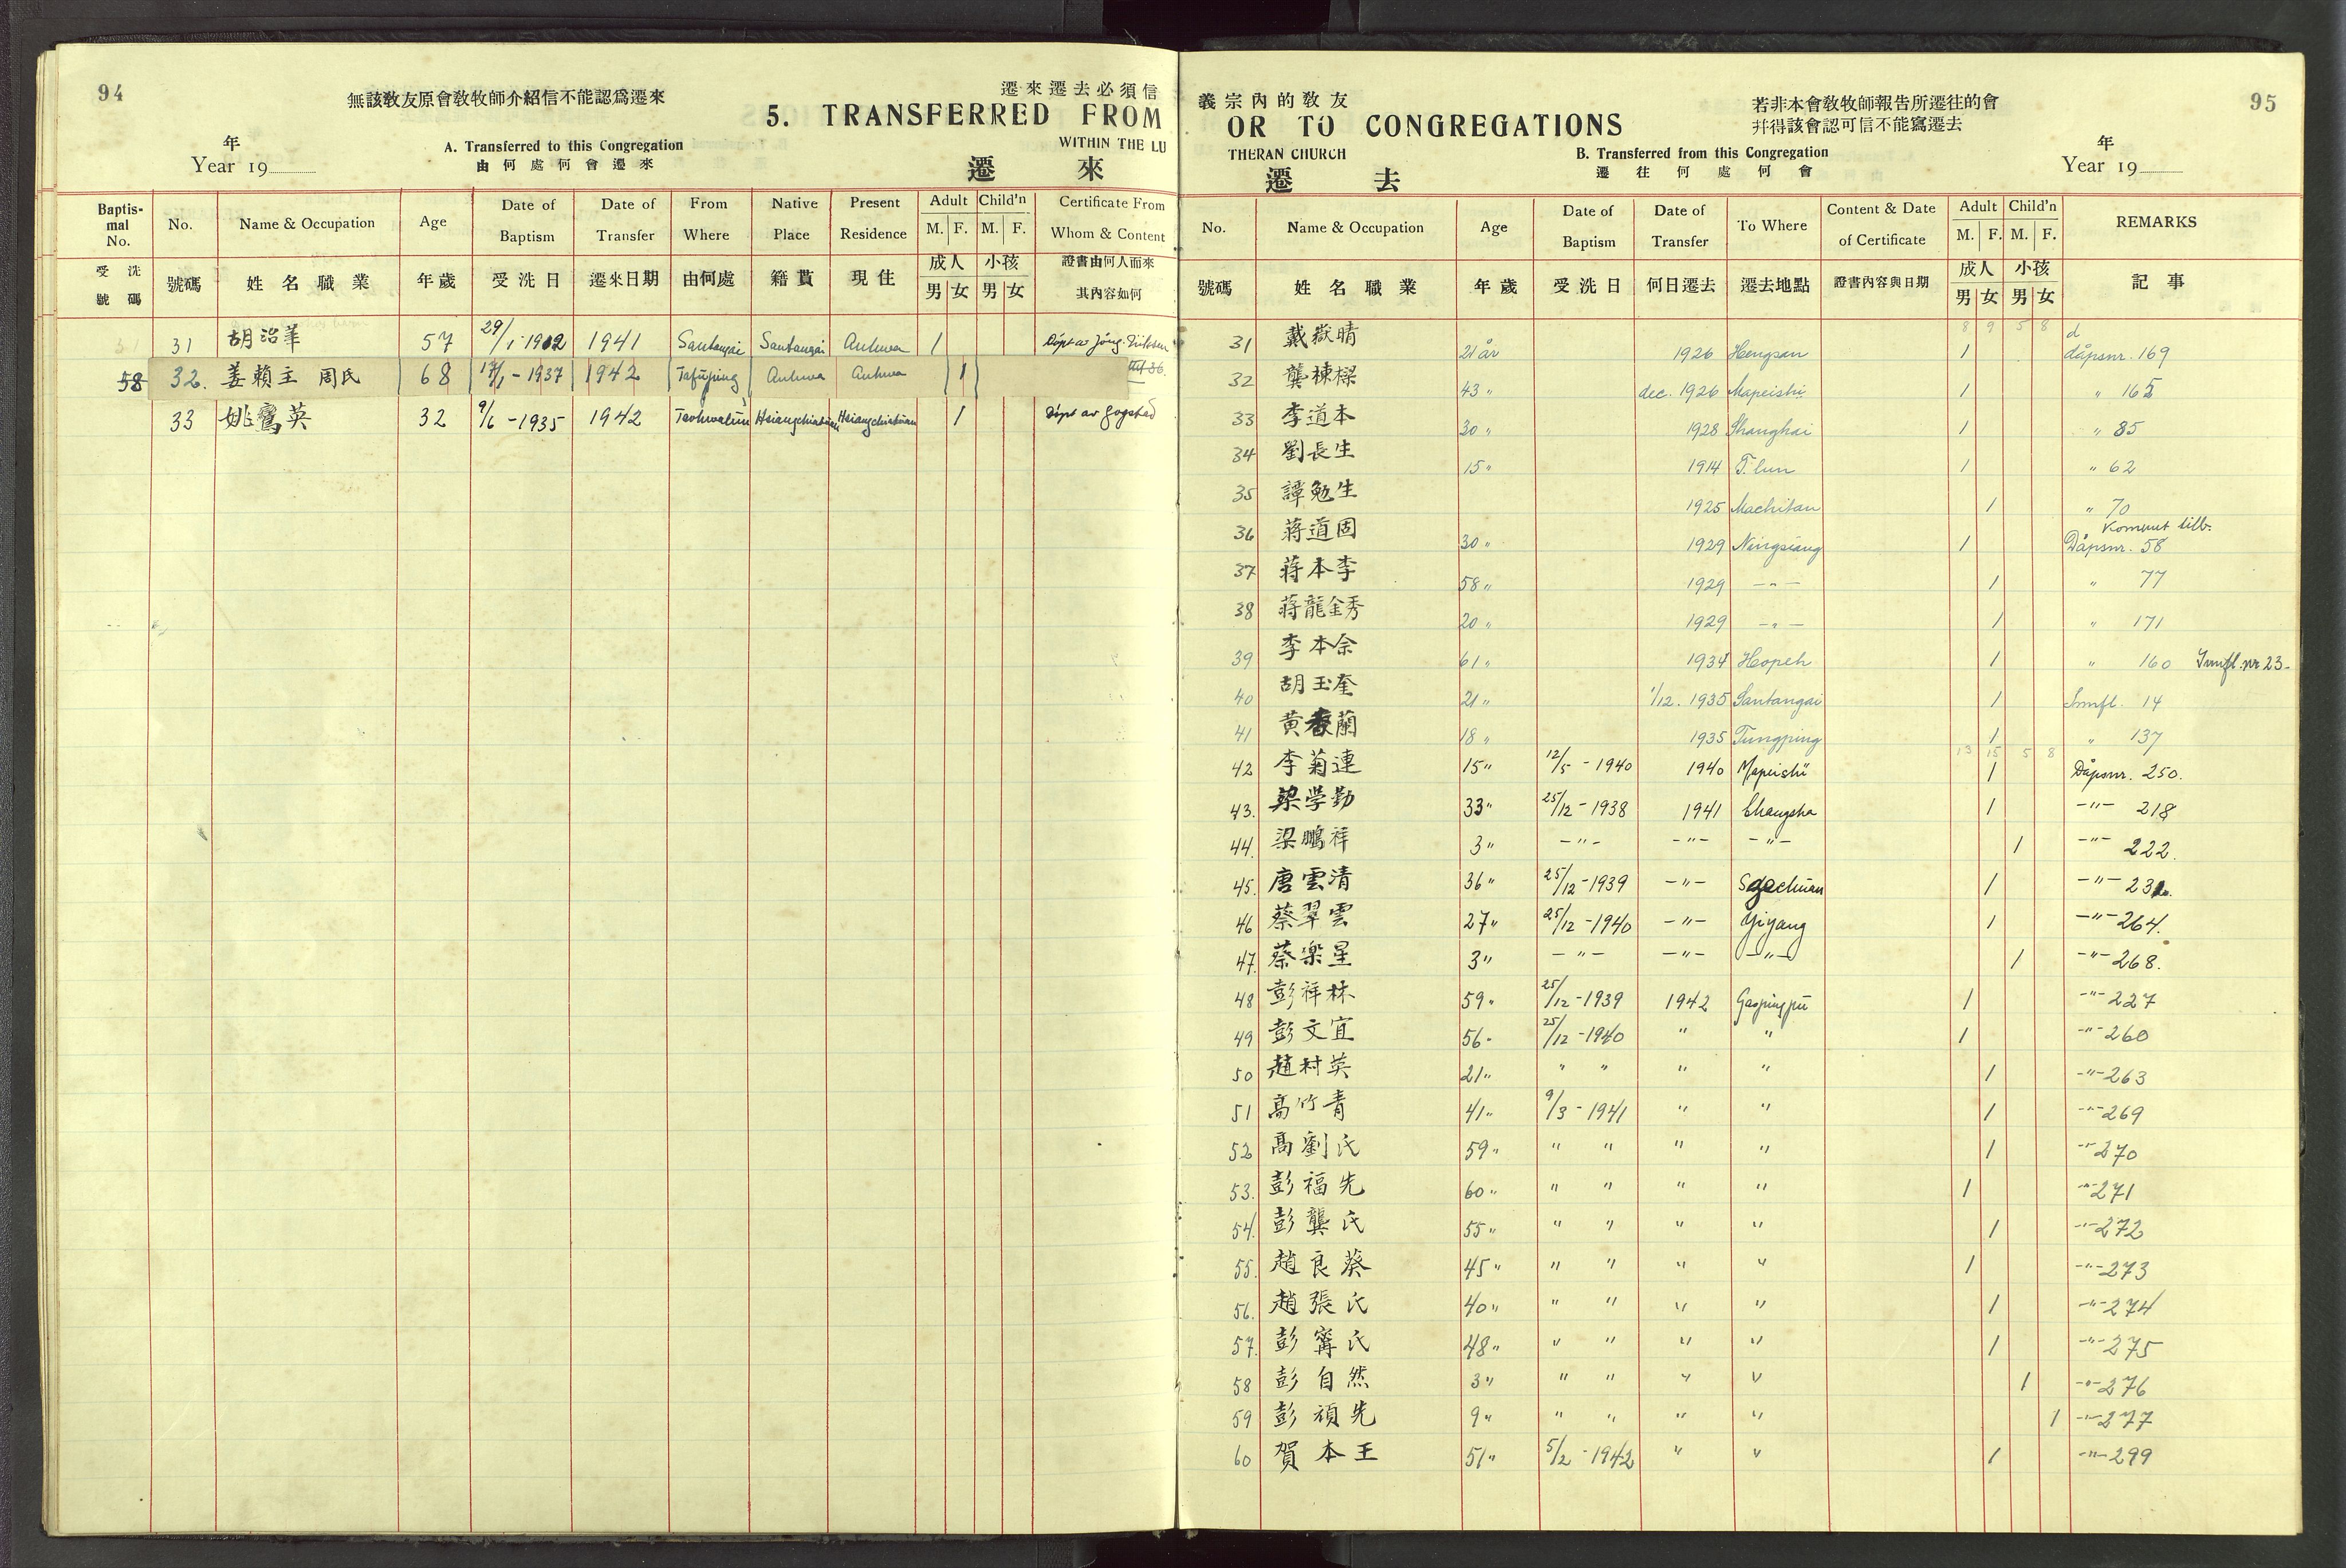 94
無該敎友原會敎牧師介紹信不能認爲遷來
遷來遷去必須信
5. TRANSFERRED FROM
年
Year 19
A. Transferred to this Congregation
由何處何會遷來
WITHIN THE LU
遷 來
Baptismal No. No. Name & Occupation Age Date of Baptism Date of Transfer From Where Native Place Present Residence Adult M. F. Child'n M. F. Certificate From Whom & Content
受洗號碼 號碼 姓名職業 年歲 受洗日 遷來日期 由何處 籍貫 現住 成人 男 女 小孩 男 女 證書由何人而來 其內容如何
31 胡治羊 57 29/1-1912 1941 Santangai Santangai Anhwa 1
58 32. 姜賴主 周氏 68 17/1-1937 1942 Tafuping Anhwa Anhwa 1
33 姚鸞英 32 9/6-1935 1942 Taohwalun Hsiangchiatsian Hsiangchiatsian 1 Döpt av Gogstad
95
義宗內的敎友
若非本會敎牧師報告所遷往的會
幷得該會認可信不能寫遷去
OR TO CONGREGATIONS
THERAN CHURCH
B. Transferred from this Congregation
遷往何處何會
年
Year 19
遷 去
No. Name & Occupation Age Date of Baptism Date of Transfer To Where Content & Date of Certificate Adult M. F. Child'n M. F. REMARKS
號碼 姓名職業 年歲 受洗日 何日遷去 遷去地點 證書內容與日期 成人 男 女 小孩 男 女 記事
8 9 5 8
31 戴嶽晴 21 år 1926 Hengsan 1 dåpsnr. 169
32 龔棟樑 43 " dec. 1926 Mapeishi 1 " 165
33 李道本 30 " 1928 Shanghai 1 " 85
34 劉長生 15 " 1914 T.lun 1 " 62
35 譚勉生 1925 Machitan 1 " 70
Kommet tilb.
36 蔣道固 30 " 1929 Ningsiang 1 Dåpsnr. 58
37 蔣本李 58 " 1929 -"- 1 " 77
38 蔣龍金秀 20 " 1929 -"- 1 " 171
39 李本余 61 " 1934 Hopeh 1 " 160 Innfl. nr 23-
40 胡玉奎 21 " 1/12. 1935 Santangai 1 Innfl. 14
41 黄香蘭 18 " 1935 Tungping 1 " 137
13 15 5 8
42 李菊連 15 " 12/5-1940 1940 Mapeishi 1 Dåpsnr. 250.
43. 梁學勤 33 " 25/12-1938 1941 Changsha 1 -"- 218
44. 梁鵬祥 3 " -"- -"- -"- 1 -"- 222.
45. 唐雲清 36 " 25/12-1939 -"- 1 -"-
46 蔡翠雲 27 " 25/12-1940 -"- Yiyang 1 -"- 264.
47. 蔡樂星 3 " -"- -"- -"- 1 -"- 268.
48 彭祥林 59 " 25/12-1939 1942 Gaopingpu 1 -"- 227
49 彭文宜 56 " 25/12-1940 " " 1 -"- 260
50 趙村英 21 " " " " " 1 -"- 263
51 高竹青 41 " 9/3-1941 " " 1 -"- 269
52 高劉氏 59 " " " " " 1 -"- 270
53. 彭福先 60 " " " " " 1 -"- 271
54. 彭龔氏 55 " " " " " 1 -"- 272
55. 趙良葵 45 " " " " " 1 -"- 273
56. 趙張氏 40 " " " " " 1 -"- 274
57. 彭甯氏 48 " " " " " 1 -"- 275
58 彭自然 3 " " " " " 1 -"- 276
59 彭禎先 9 " " " " " 1 -"- 277
60 賀本王 51 " 5/2-1942 " " 1 -"- 299